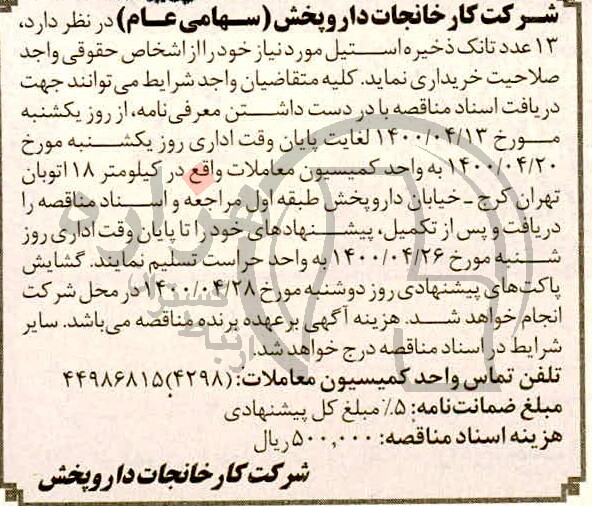 شرکت کارخانجات داروپخش (سهامی عام) در نظر دارد،
۱۳ عدد تانک ذخیره استیل مورد نیاز خود را از اشخاص حقوقی واجد
صلاحیت خریداری نماید. کلیه متقاضیان واجد شرایط می توانند جهت
دریافت اسناد مناقصه با در دست داشتن معرفی‌نامه، از روز یکشنبه
مورخ ۱۴۰۰/۰۴/۱۳ لغایت پایان وقت اداری روز یکشنبه مورخ
۱۴۰۰/۰۴/۲۰ به واحد کمیسیون معاملات واقع در کیلومتر ۱۸ اتوبان
تهران کرج ـ خیابان داروپخش طبقه اول مراجعه و اسناد مناقصه را
دریافت و پس از تکمیل، پیشنهادهای خود را تا پایان وقت اداری روز
شنبه مورخ ۱۴۰۰/۰۴/۲۶ به واحد حراست تسلیم نمایند. گشایش
پاکت‌های پیشنهادی روز دوشنبه مورخ ۱۴۰۰/۰۴/۲۸ در محل شرکت
انجام خواهد شد. هزینه آگهی بر عهده برنده مناقصه می‌باشد. سایر
شرایط در اسناد مناقصه درج خواهد شد.
تلفن تماس واحد کمیسیون معاملات: (۴۲۹۸) ۴۴۹۸۶۸۱۵
مبلغ ضمانت‌نامه: ۵٪ مبلغ کل پیشنهادی
هزینه اسناد مناقصه: ۵۰۰,۰۰۰ ریال
شرکت کارخانجات داروپخش
هزاره